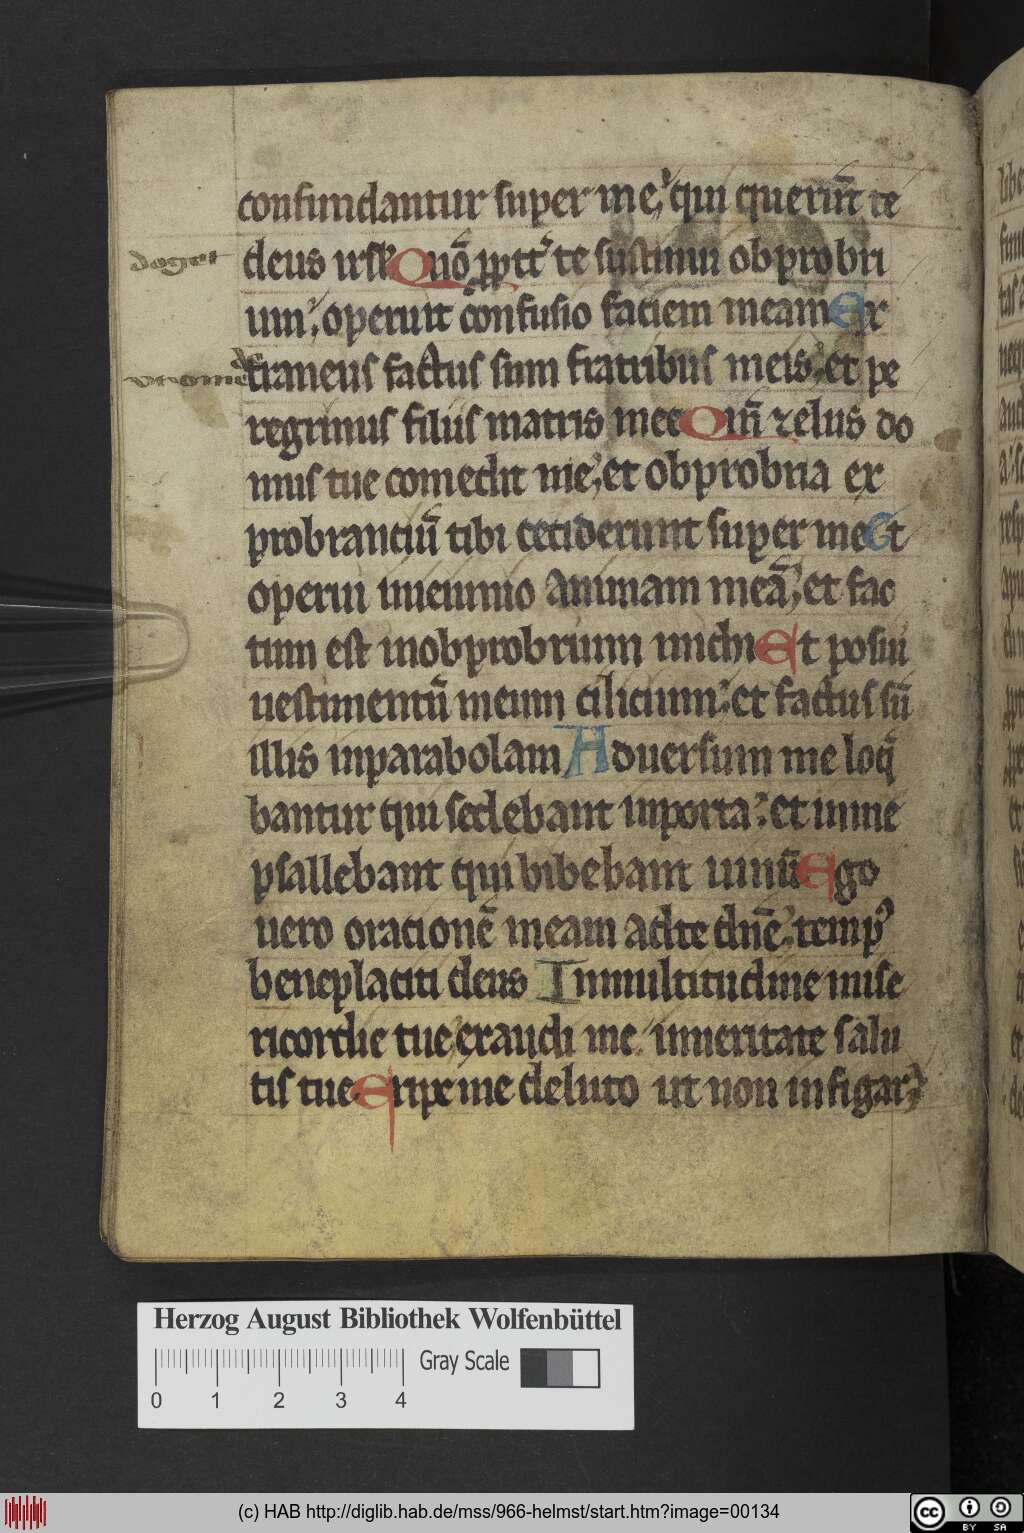 confundantur super me, qui querunt te
doget
deus isrl Quō ꝓpt̄ te sustinui obprobri
um, operuit cōfusio faciem meam Ex
vrome de
traneus factus sum fratribus meis, et pe
regrinus filiis matris mee Qm̄ zelus do
mus tue comedit me, et obprobria ex
probranciū tibi ceciderunt super me Et
operui inieiunio animam meā, et fac
tum est inobprobrium michi Et posui
uestimentū meum cilicium, et factus sū
illis inparabolam Aduersum me loq̄
bantur qui sedebant inporta, et inme
psallebant qui bibebant uinū Ego
uero orationē meam adte dn̄e, temp9
beneplaciti deus Inmultitudine mise
ricordie tue exaudi me inueritate salu
tis tue Eripe me deluto ut non infigar,
Herzog August Bibliothek Wolfenbüttel
Gray Scale
0 1 2 3 4
(c) HAB http://diglib.hab.de/mss/966-helmst/start.htm?image=00134
cc BY SA